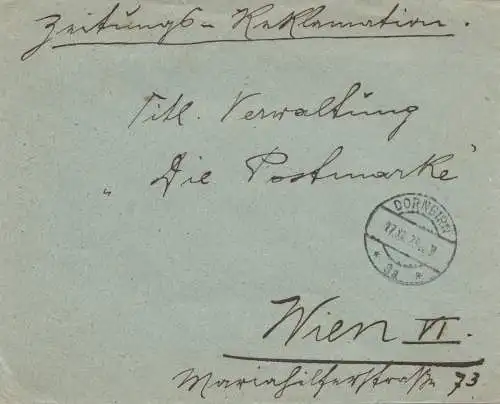 Zeitungs-Reklamation.
Titl. Verwaltung
„Die Postmarke“
DORNBIRN
* 3a *
Wien VI.
Mariahilferstraße 73